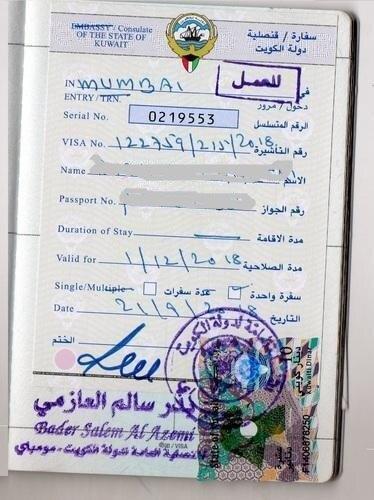 EMBASSY / Consulate
OF THE STATE OF
KUWAIT
سفارة / قنصلية
دولة الكويت
للعمل
IN MUMBAI في
ENTRY / TRN. دخول / مرور
Serial No. 0219553 الرقم المتسلسل
VISA No. 122759/215/2018 رقم التأشيرة
Name الاسم
Passport No. رقم الجواز
Duration of Stay مدة الاقامة
Valid for 1/12/2018 مدة الصلاحية
Single/Multiple عدة سفرات سفرة واحدة
Date 21/9/2018 التاريخ
الختم
10
دينار كويتي
Kuwaiti Dinar
بدر سالم العازمي
Bader Salem Al Azemi
القنصلية العامة لدولة الكويت - مومباي